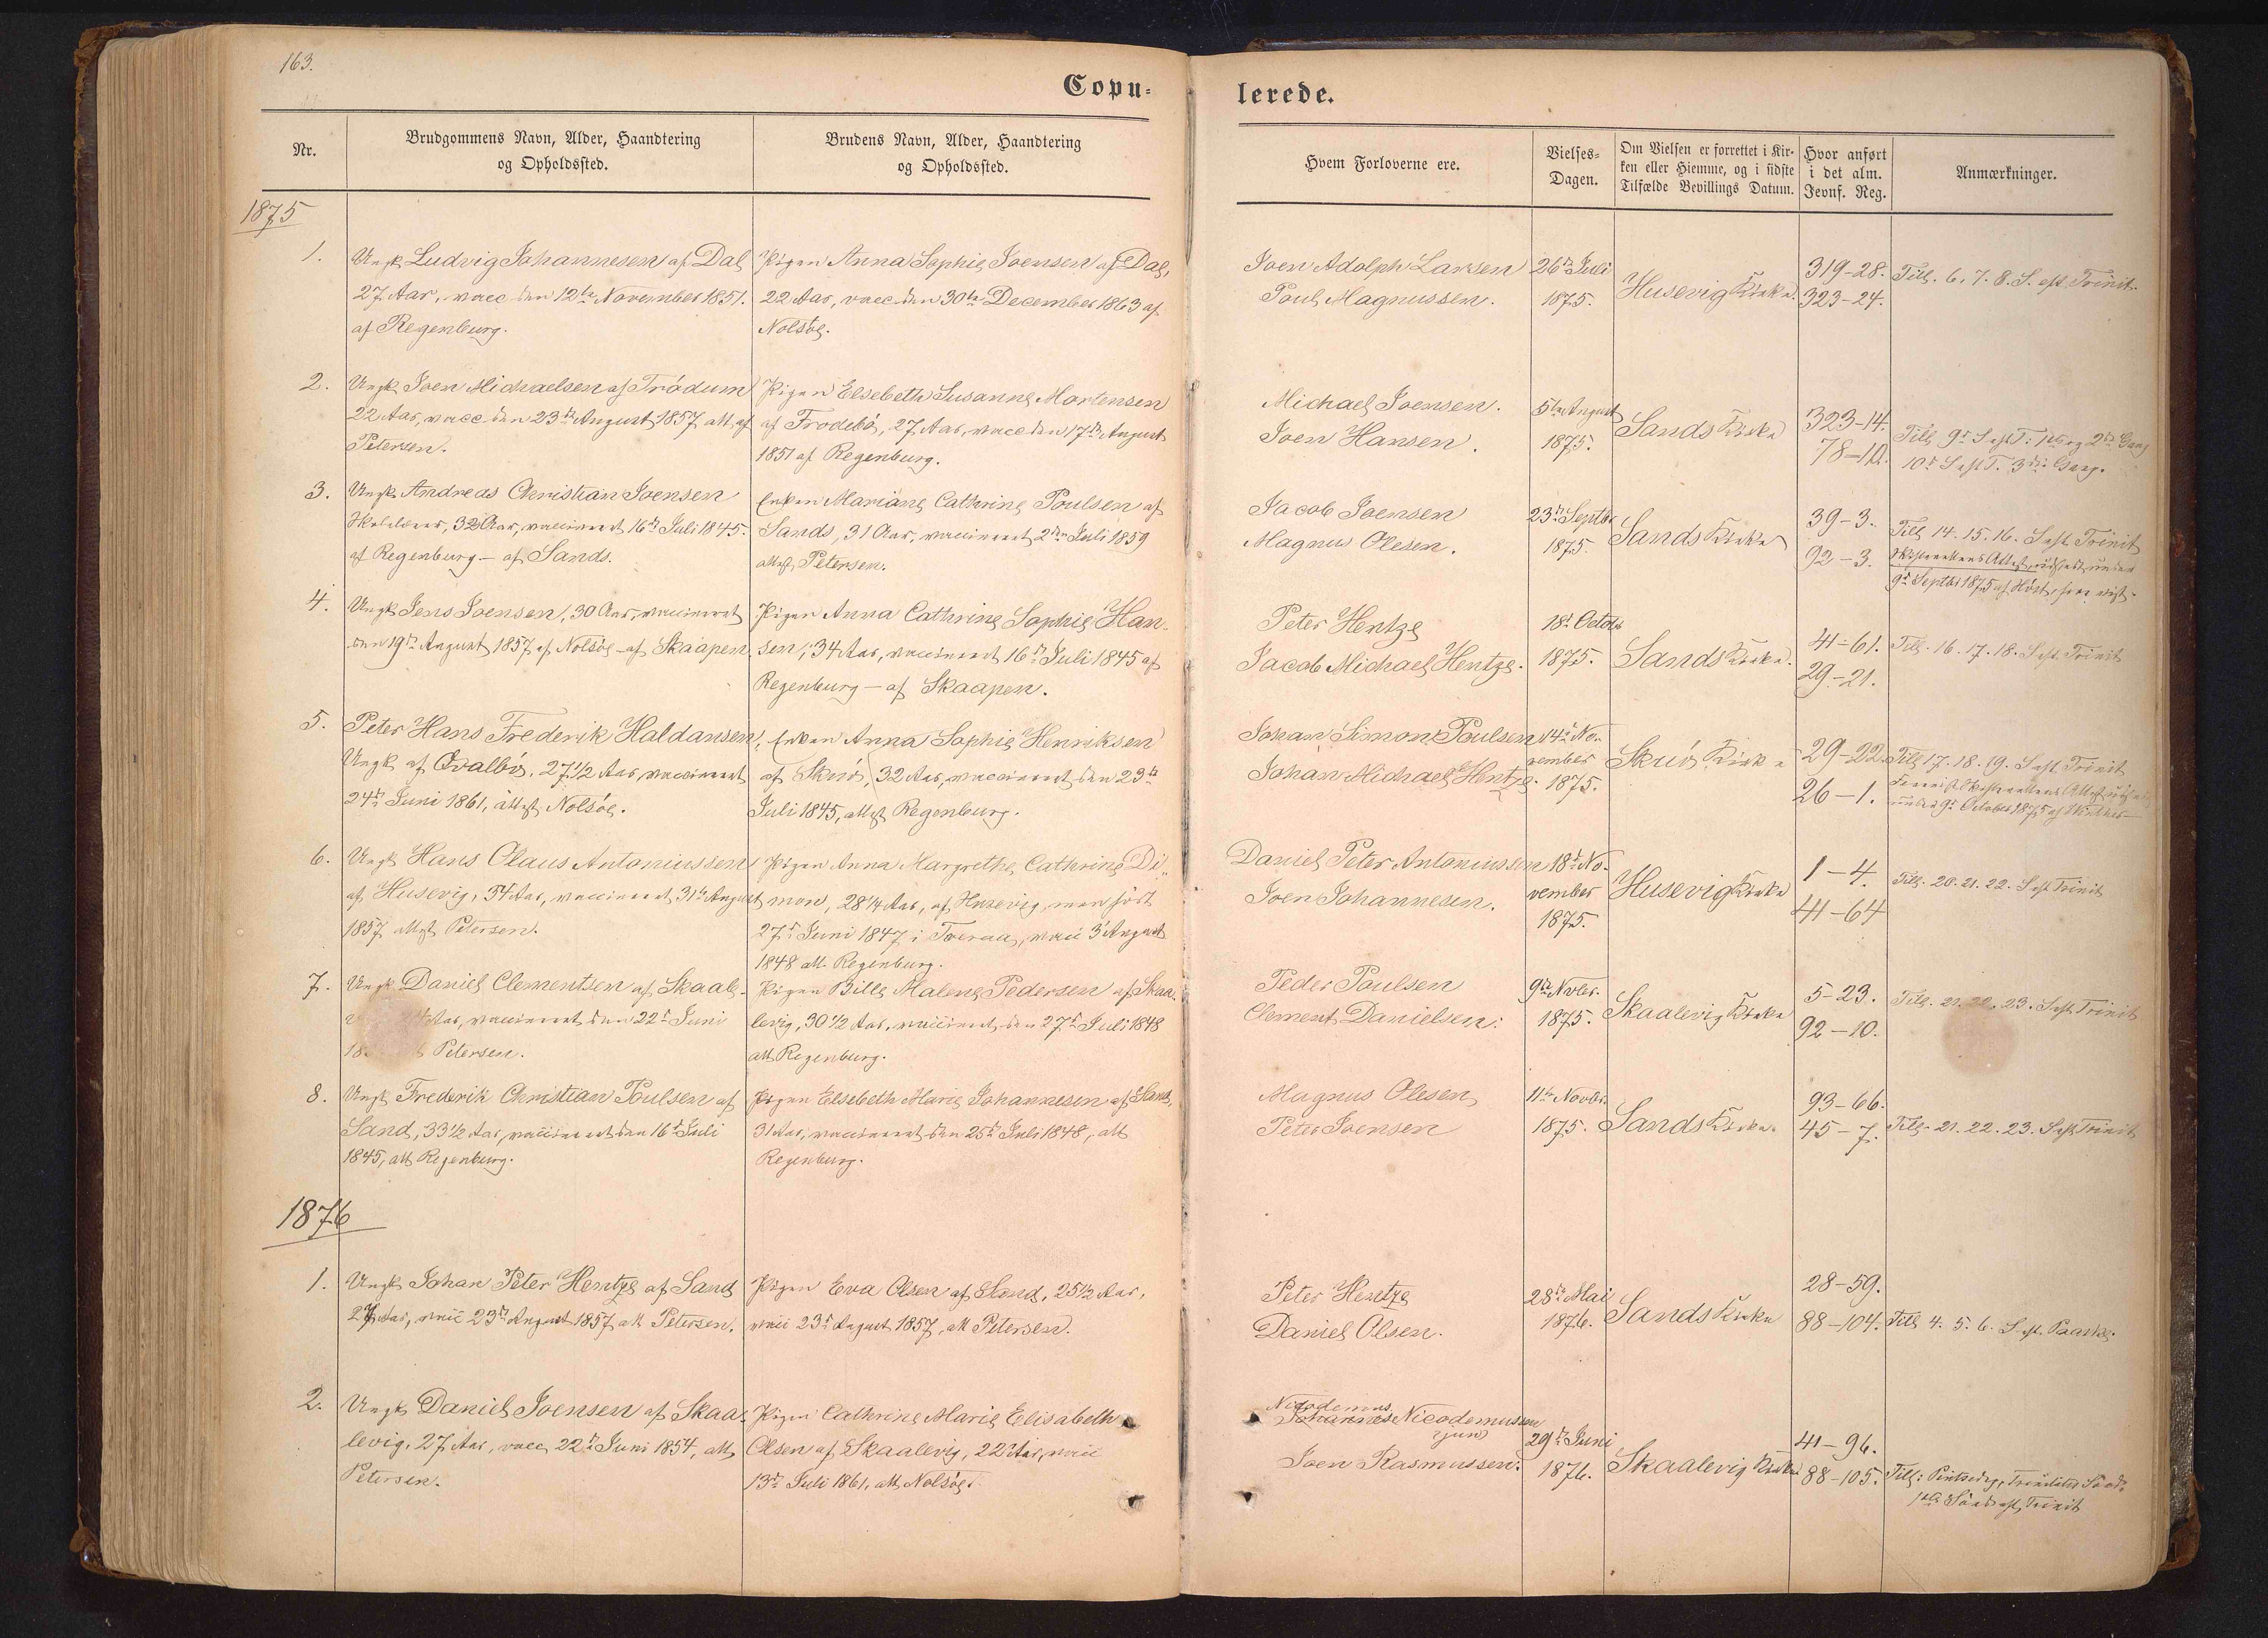 163.
Copu-
lerede.
Nr.
Brudgommens Navn, Alder, Haandtering
og Opholdssted.
Brudens Navn, Alder, Haandtering
og Opholdssted.
Hvem Forloverne ere.
Vielses-
Dagen.
Om Vielsen er forrettet i Kir-
ken eller Hiemme, og i sidste
Tilfælde Bevillings Datum.
Hvor anført
i det alm.
Jevnf. Reg.
Anmærkninger.
1875
1.
Ungk. Ludvig Johannesen af Dal
27 Aar, vacc. den 12te November 1851.
af Regenburg.
Pigen Anna Sophie Joensen af Dal,
22 Aar, vacc. den 30te December 1863 af
Nolsöe.
Joen Adolph Larsen
Poul Magnussen.
26de Juli
1875.
Husevig Kirke.
319-28.
323-24.
Till. 6. 7. 8. S. eft. Trinit.
2.
Ungk. Joen Michaelsen af Tródum
22 Aar, vacc. den 23de August 1857 att. af
Petersen.
Pigen Elsebeth Susanne Mortensen
af Frodebö, 27 Aar, vacc. den 17de August
1851 af Regenburg.
Michael Joensen.
Joen Hansen.
5te August
1875.
Sands Kirke
323-14.
78-10.
Till. 9d S. eft. T. 1ste og 2den Gang
10d S. eft. T. 3die Gang.
3.
Ungk. Andreas Christian Joensen
Skolelærer, 32 Aar, vaccineret 16de Juli 1845.
af Regenburg - af Sands.
Enken Mariane Cathrine Poulsen af
Sands, 31 Aar, vaccineret 2den Juli 1859
attest Petersen.
Jacob Joensen
Magnus Olesen.
23de Septbr
1875.
Sands Kirke
39-3.
92-3.
Till. 14. 15. 16. S. eft. Trinit
Skifterettens Attest, udstedt under
9d Septbr 1875 af Höst, forevist.
4.
Ungk. Jens Joensen, 30 Aar, vaccineret
den 19de August 1857 af Nolsöe - af Skaapen.
Pigen Anna Cathrine Sophie Han-
sen, 34 Aar, vaccineret 16de Juli 1845 af
Regenburg - af Skaapen.
Peter Hentze
Jacob Michael Hentze.
18d October
1875.
Sands Kirke.
41-61.
29-21.
Till. 16. 17. 18. S. eft. Trinit
5.
Peter Hans Frederik Haldansen,
Ungk. af Qvalbö, 27 1/2 Aar, vaccineret
24de Juni 1861, attest Nolsöe.
Enken Anna Sophie Henriksen
af Skuö, 32 Aar, vaccineret den 23de
Juli 1845, attest Regenburg.
Johan Simon Poulsen
Johan Michael Hentze.
14d No-
vember
1875.
Skuö Kirke
29-22.
26-1.
Till. 17. 18. 19. S. eft. Trinit
Forevist Skifterettens Attest
under 9d October 1875 af
6.
Ungk. Hans Olaus Antoniussen
af Husevig, 34 Aar, vaccineret 31te August
1857 attest Petersen.
Pigen Anna Margrethe Cathrine Di-
mon, 28 1/4 Aar, af Husevig, men född
27d Juni 1847 i Tveraa, vacc. 3 August
1848 att. Regenburg.
Daniel Peter Antoniussen
Joen Johannesen.
18d No-
vember
1875.
Husevig Kirke
1-4.
41-64
Till. 20. 21. 22. S. eft. Trinit
7.
Ungk. Daniel Clementsen af Skaale-
Aar, vaccineret den 22d Juni
18 Petersen.
Pigen Bille Malene Pedersen af Skaa-
levig, 30 1/2 Aar, vaccineret den 27d Juli 1848
att. Regenburg.
Peder Poulsen
Clement Danielsen.
9de Novbr.
1875.
Skaalevig Kirke
5-23.
92-10.
Till. 21. 22. 23. S. eft. Trinit
8.
Ungk. Frederik Christian Poulsen af
Sand, 33 1/2 Aar, vaccineret den 16d Juli
1845, att. Regenburg.
Pigen Elsebeth Marie Johannesen af Sand,
31 Aar, vaccineret den 25de Juli 1848, att.
Regenburg.
Magnus Olesen
Peter Joensen
11te Novbr.
1875.
Sands Kirke.
93-66.
45-7.
Till. 21. 22. 23. S. eft. Trinit
1876
1.
Ungk. Johan Peter Hentze af Sand
27 Aar, vacc. 23de August 1857 att. Petersen.
Pigen Eva Olsen af Sand, 25 1/2 Aar,
vacc. 23d August 1857, att. Petersen.
Peter Hentze
Daniel Olsen.
28de Mai
1876.
Sands Kirke
28-59.
88-104.
Till. 4. 5. 6. S. eft. Paaske.
2.
Ungk. Daniel Joensen af Skaa-
levig, 27 Aar, vacc. 22de Juni 1854, att.
Petersen.
Pigen Cathrine Marie Elisabeth
Olsen af Skaalevig, 22 Aar, vacc.
13de Juli 1861, att. Nolsöe.
Nicodemus
Johannes Nicodemussen
jun
Joen Rasmussen.
29de Juni
1876.
Skaalevig Kirke
41-96.
88-105.
Till: Pintsedag, Trinitatis Sönd.
1ste Sönd. eft. Trinit